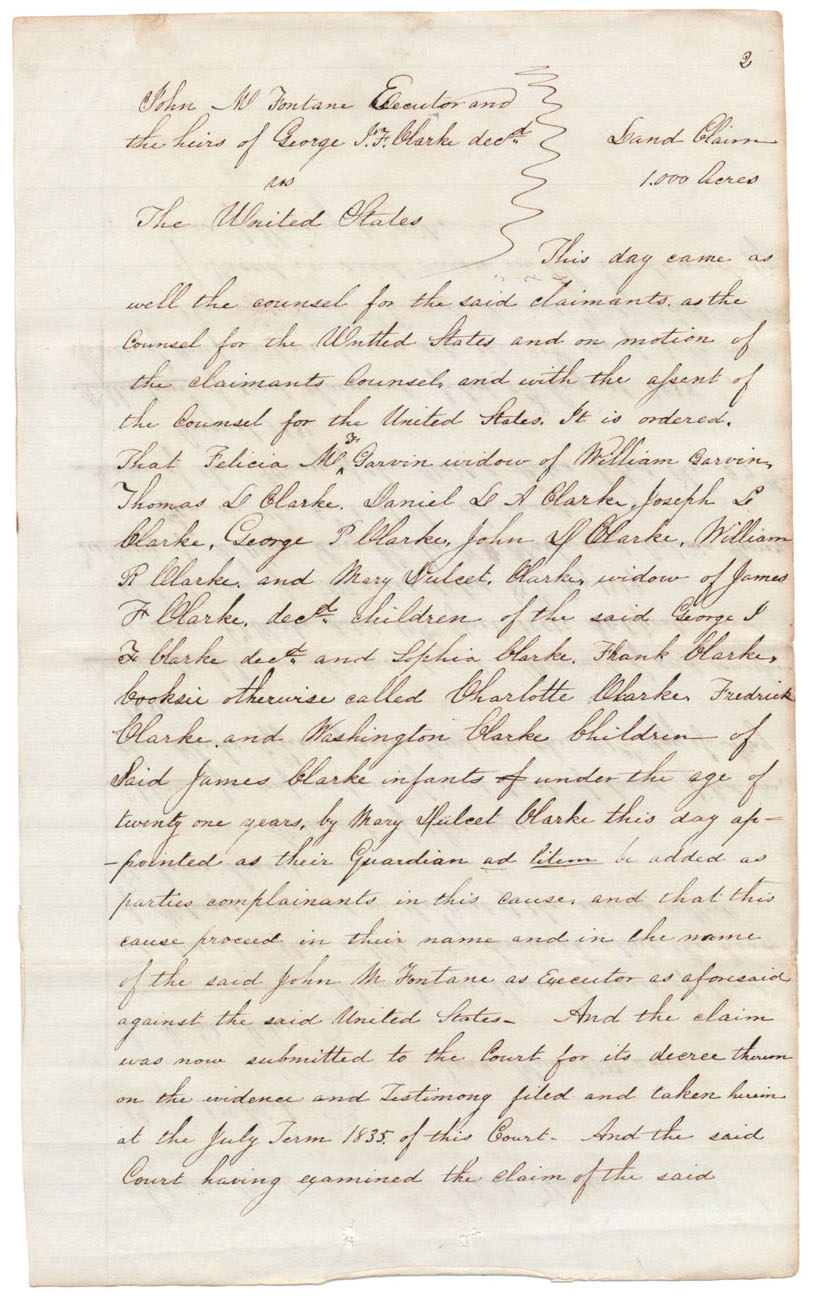 2
John M Fontane Executor and
the heirs of George J. F. Clarke decd. Land Claim
vs 1.000 Acres
The United States
This day came as
well the counsel for the said claimants. as the
Counsel for the Unitted States and on motion of
the claimants Counsel, and with the assent of
the Counsel for the United States. It is ordered.
That Felicia M F Garvin widow of William Garvin,
Thomas L Clarke. Daniel L A Clarke, Joseph L
Clarke, George P Clarke, John D Clarke, William
R Clarke, and Mary Dulcet, Clarke, widow of James
F Clarke, decd. children of the said George J
F Clarke decd. and Sophia Clarke. Frank Clarke,
Cooksie otherwise called Charlotte Clarke, Fredrick
Clarke, and Washington Clarke Children of
Said James Clarke infants of under the age of
twenty one years, by Mary Dulcet Clarke this day ap=
-pointed as their Guardian ad litem be added as
parties complainants in this cause, and that this
cause proceed in their name and in the name
of the said John M Fontane as Executor as aforesaid
against the said United States- And the claim
was now submitted to the Court for its decree thereon
on the evidence and Testimony filed and taken herein
at the July Term 1835. of this Court- And the said
Court having examined the claim of the said